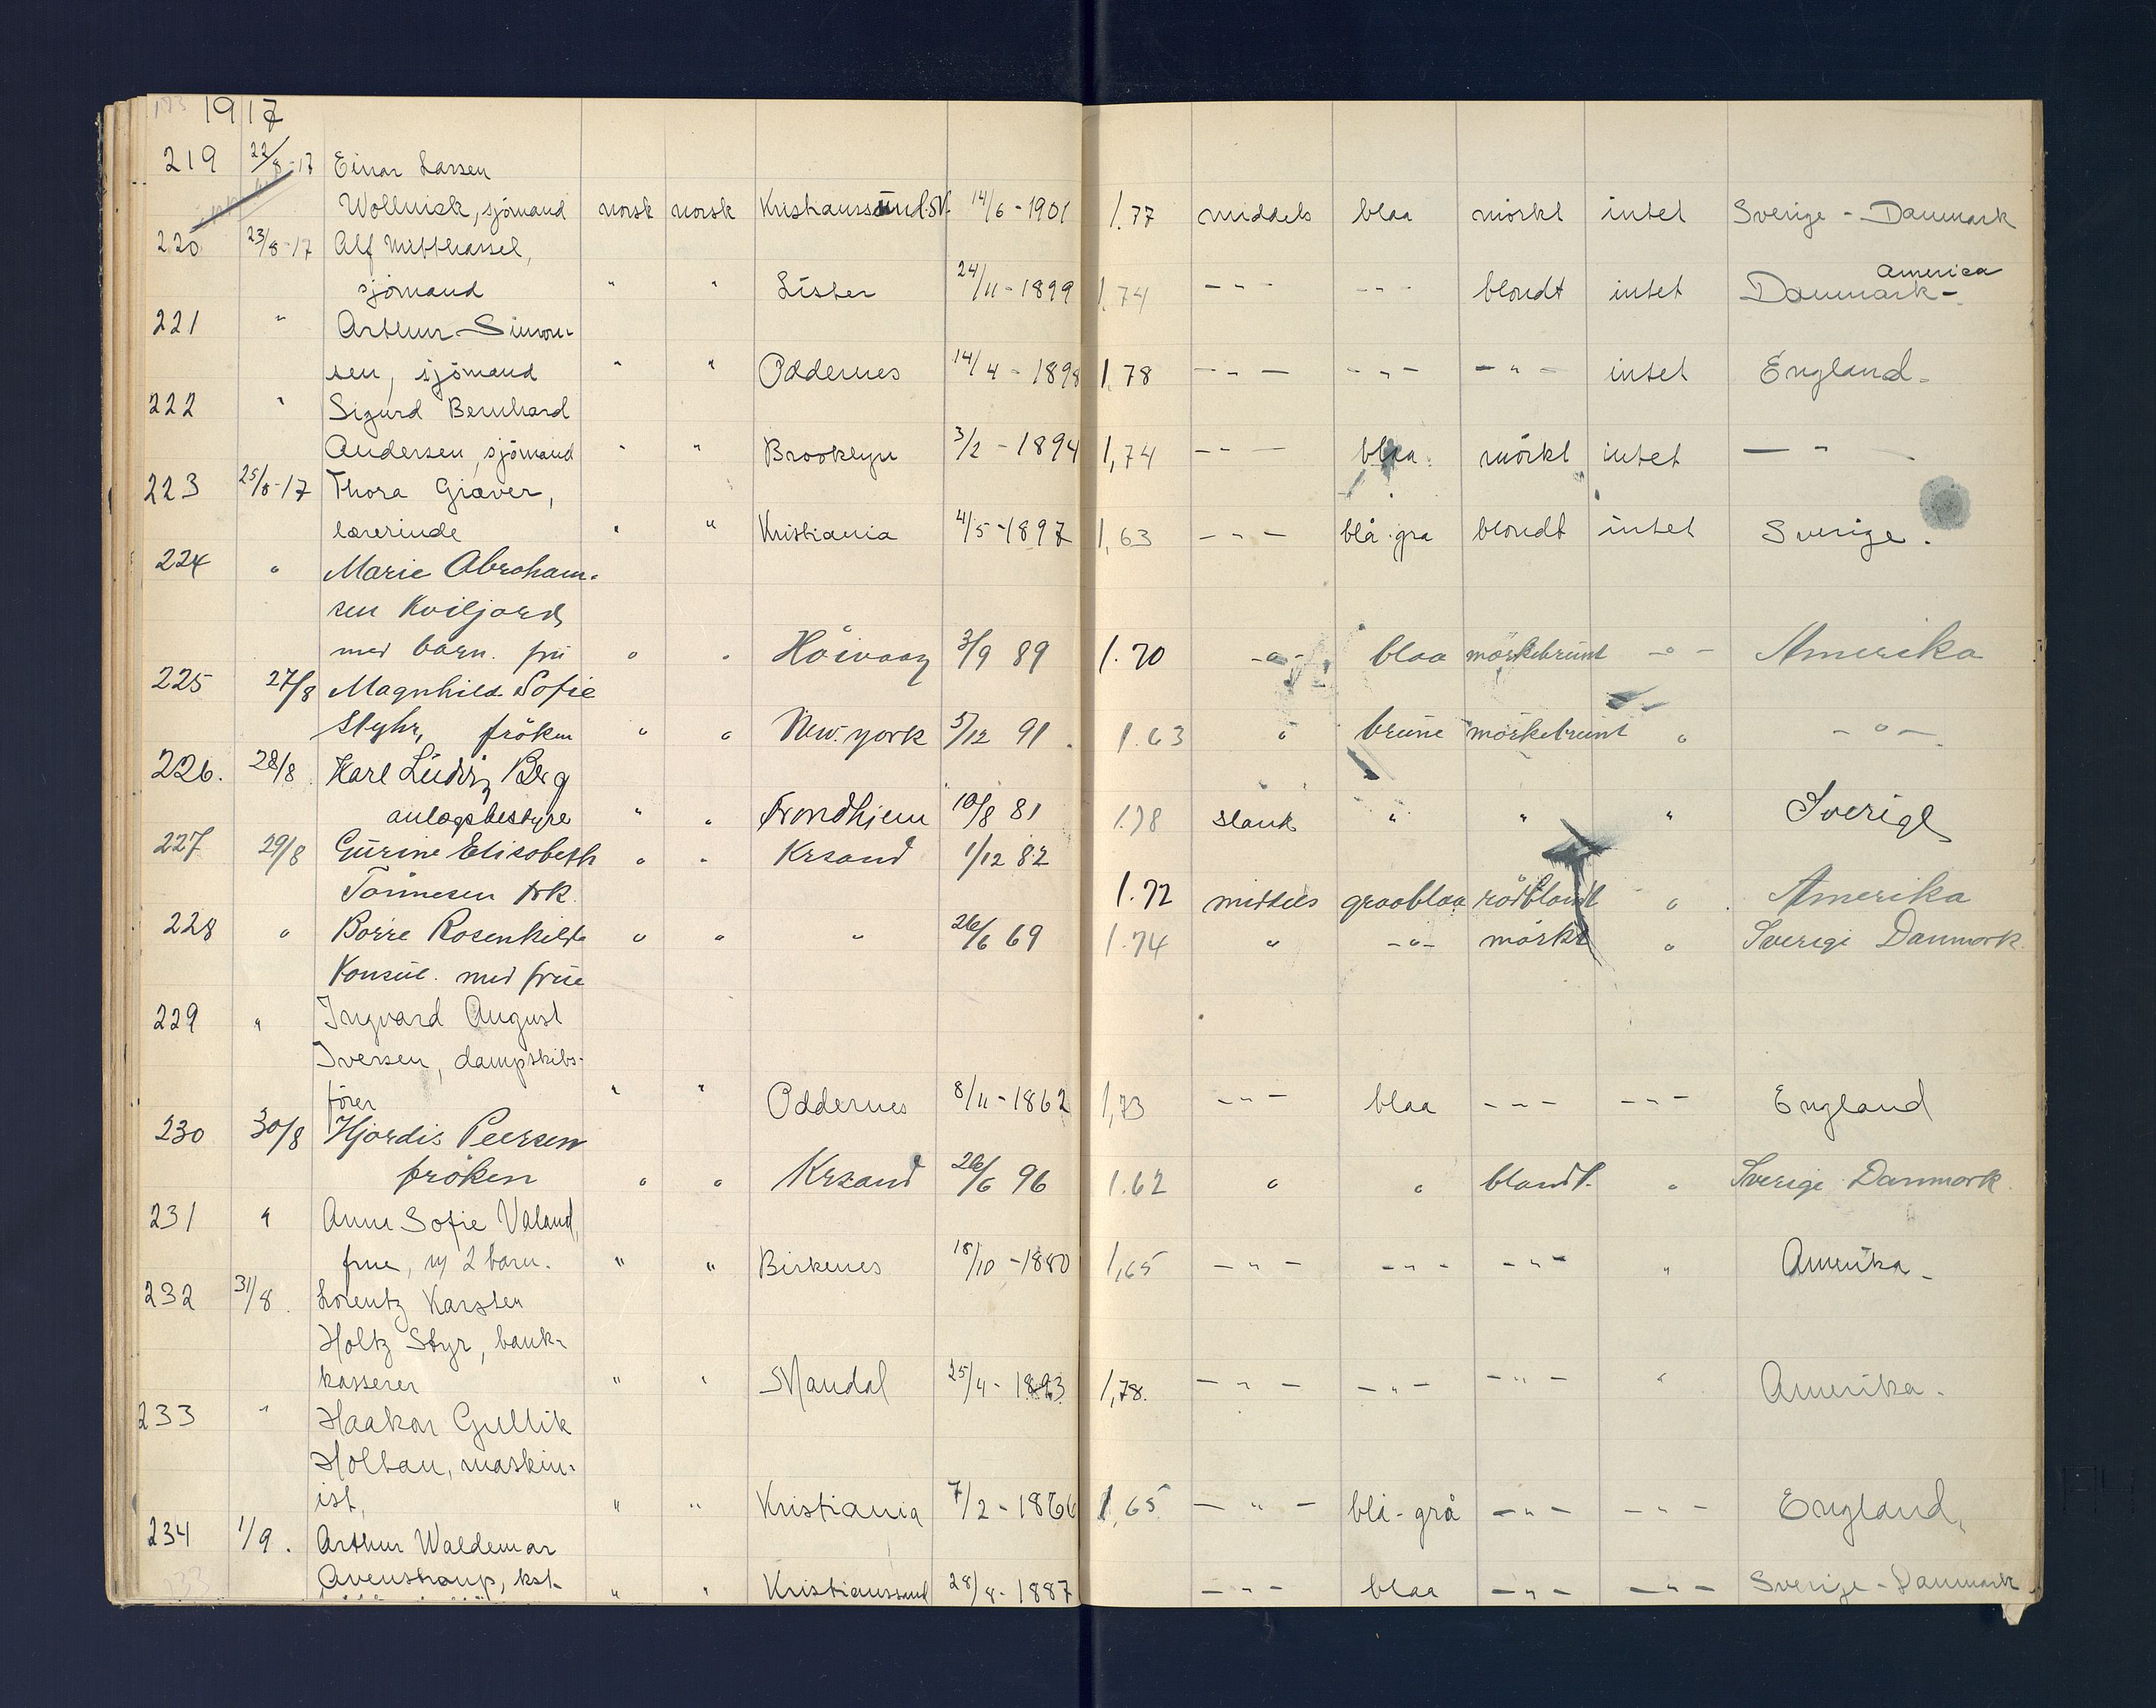 1917
219 22/8-17 Einar Larsen
Wollnick, sjömand norsk norsk Kristianssund.N. 14/6-1901 1.77 middels blaa mörkt intet Sverige - Danmark
220 23/8-17 Alf
America
sjömand " " Lister 24/11-1899 1,74 - " - - " - blondt intet Danmark -
221 " Arthur Simon-
sen, sjömand " " Oddernes 14/4-1898 1,78 - " - - " - - " - intet England.
222 " Sigurd Bernhard
Andersen, sjömand " " Brooklyn 3/2-1894 1,74 - " - blaa mörkt intet - " -
223 25/8-17 Thora Giæver,
lærerinde " " Kristiania 4/5-1897 1,63 - " - blå-gra blondt intet Sverige.
224 " Marie Abraham-
sen Kviljord
med barn. fru " " Höivaag 3/9 89 1.70 - " - blaa mörkebrunt - " - Amerika
225 27/8 Magnhild Sofie
Styhr, fröken " " New-york 5/12 91. 1.63 " brune mörkebrunt " - " -
226. 28/8 Karl Ludvig Berg
anlægsbestyre " " Trondhjem 10/8 81 1.78 slank " " " Sverige
227 29/8 Gurine Elisabeth " " Krsand 1/12 82
Tönnesen frk. 1.72 middels graablaa rödblondt " Amerika
228 " Börre Rosenkilde " " " 26/6 69 1.74 " - " - mörkt " Sverige Danmark
Konsul. med frue
229 " Ingvard August
Iversen, dampskibs-
förer " " Oddernes 8/11-1862 1,73 - " - blaa - " - - " - England
230 30/8 Hjördis Peersen
fröken " " Krsand 26/6 96 1.62 " " blondt. " Sverige Danmark.
231 " Anne Sofie Valand,
frue, m/ 2 barn. " " Birkenes 18/10-1880 1,65 - " - - " - - " - " Amerika -
232 31/8. Lorentz Karsten
Holtz Styr, bank-
kasserer " " Mandal 25/4-1893 1,78. - " - - " - - " - " Amerika.
233 " Haakon Gullik
Holtan, maskin-
ist, " " Kristiania 7/2-1866 1,65 - " - blå-grå - " - - " - England,
234 1/9. Arthur Waldemar
Avenstroup, kst- " " Kristianssand 28/8-1887 - " - blaa - " - - " - Sverige - Danmark